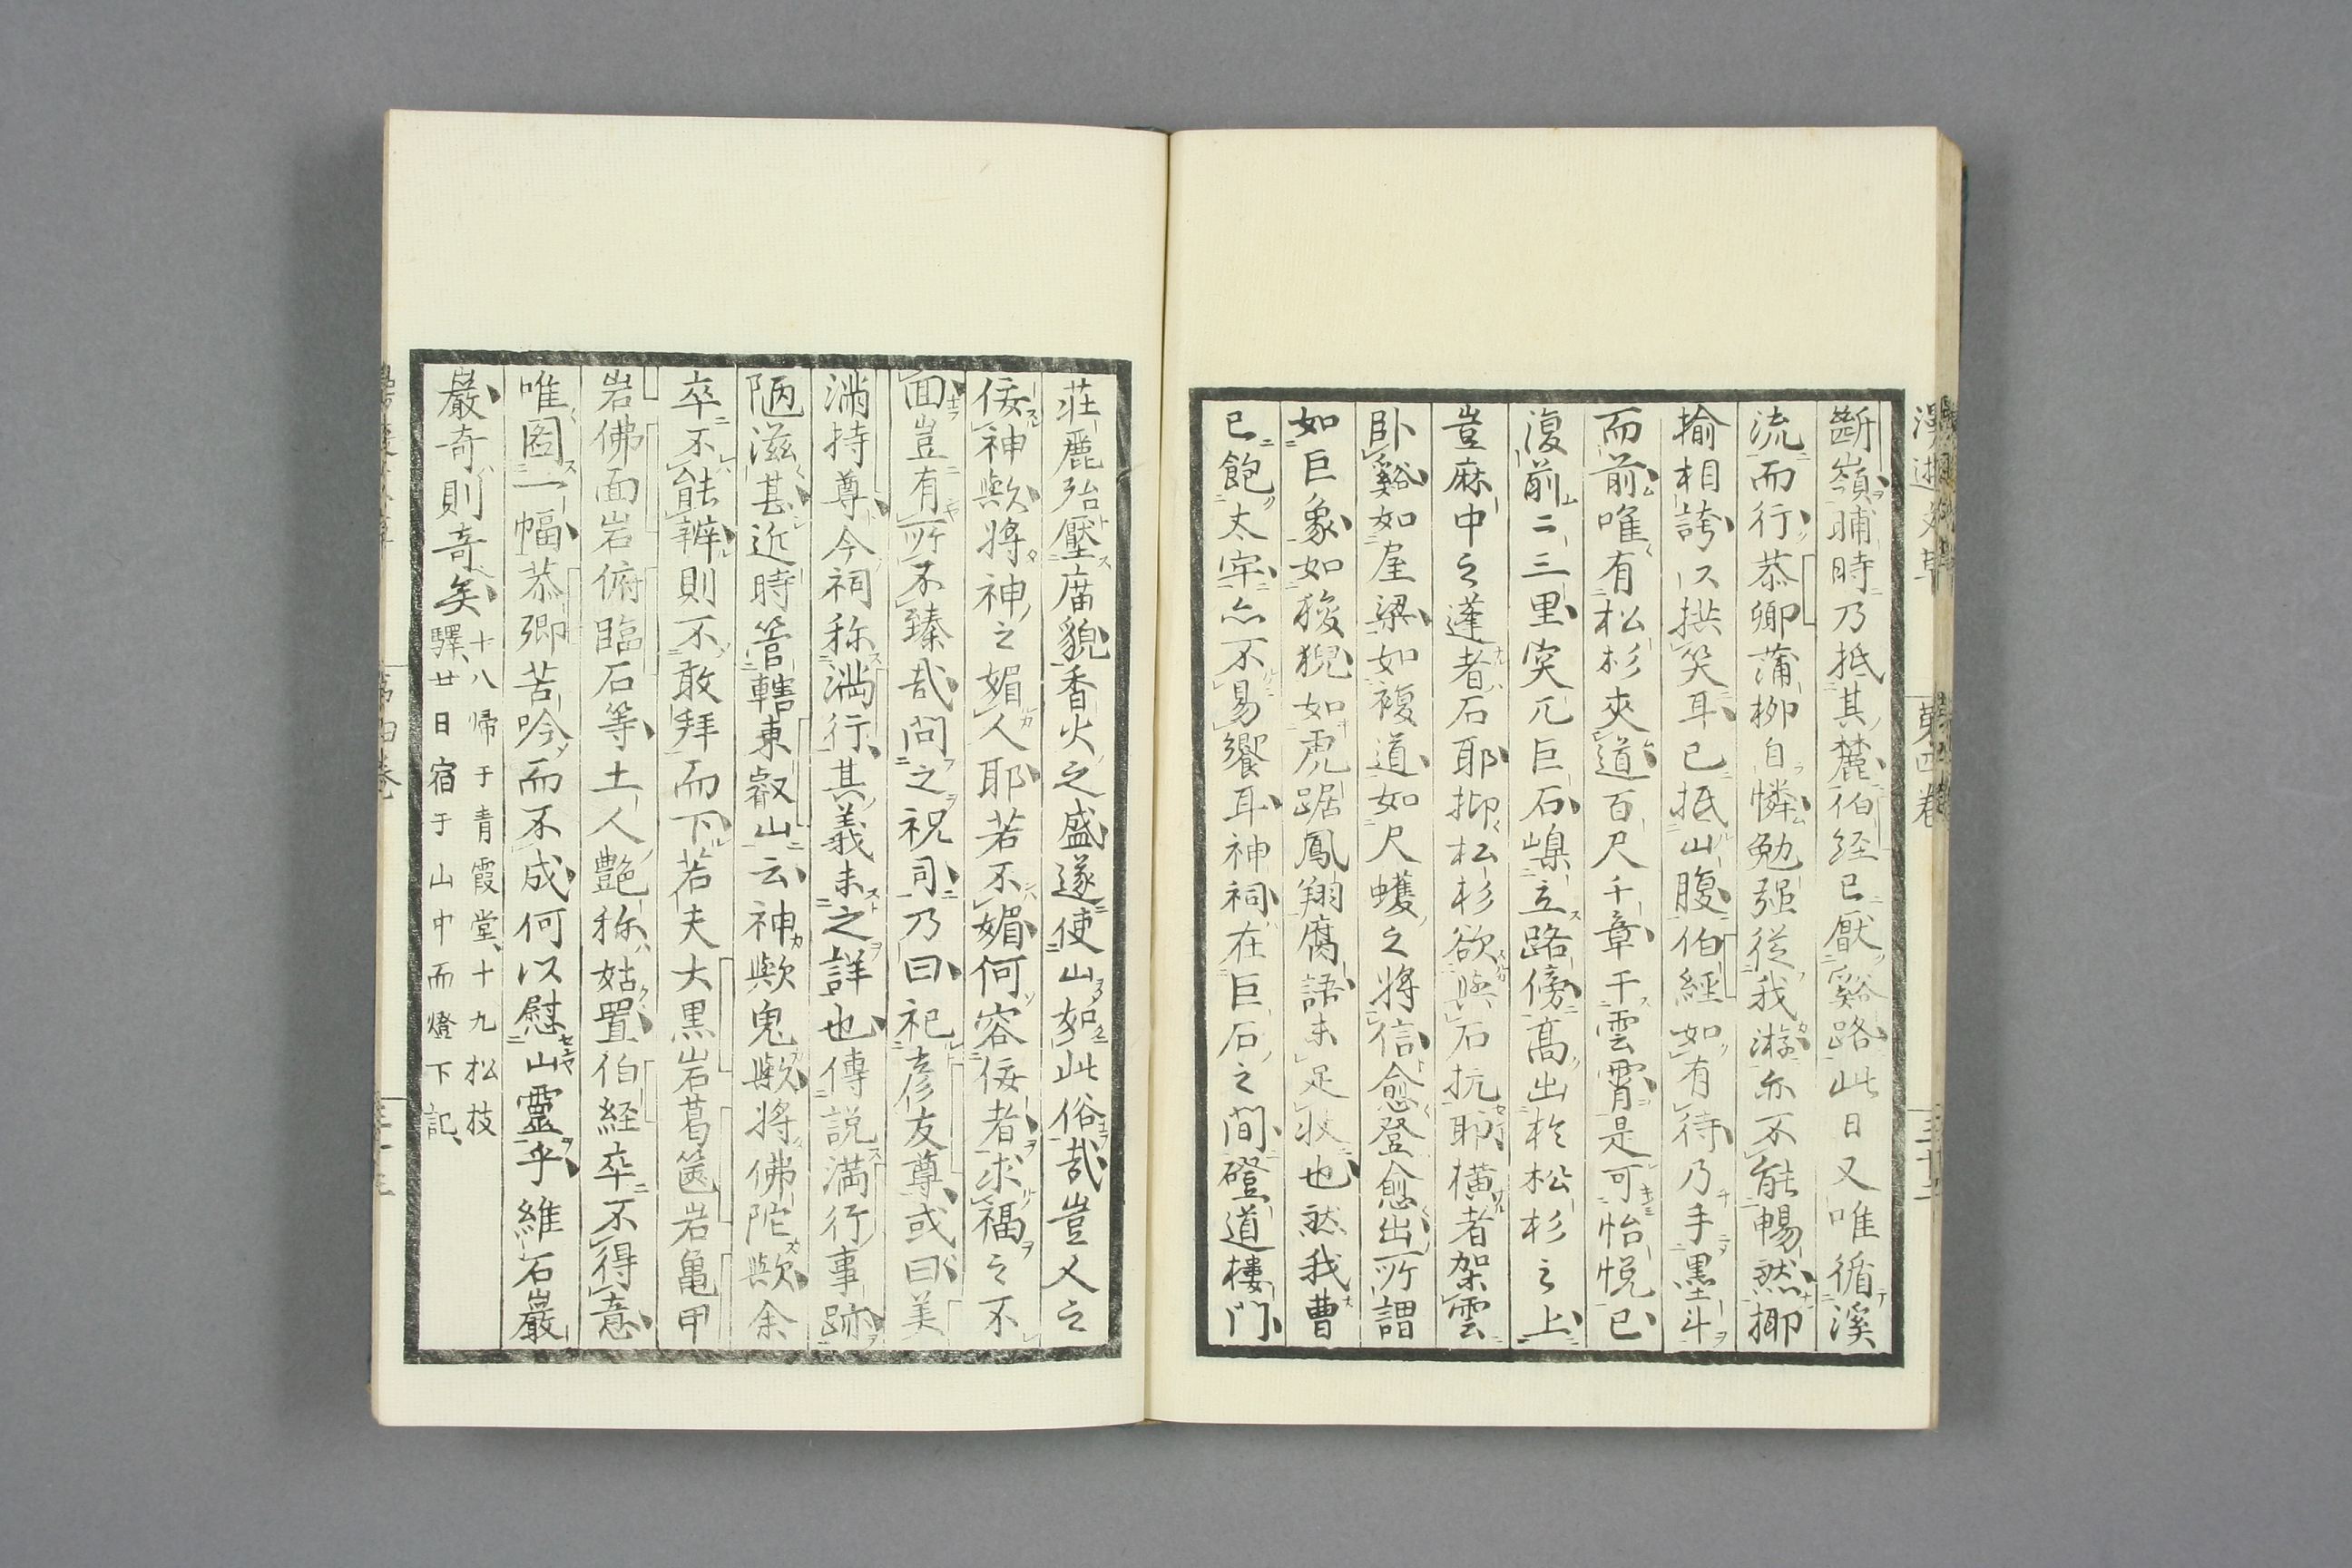 斷嶺晡時乃抵其麓伯経已厭谿路此日又唯循溪
流而行恭卿蒲柳自憐勉强從我游亦不能暢然揶
揄相誇以拱笑耳已抵山腹伯經如有待乃手墨斗
而前唯有松杉夾道百尺千章干雲霄是可怡悅已
復前二三里突兀巨石㠔立路傍高出於松杉之上
豈麻中之蓬者石耶抑松杉欲與石抗耶橫者架雲
臥谿如屋梁如複道如尺蠖之將信愈登愈出所謂
如巨象如狻猊如虎踞鳳翔腐語未足狀也然我曹
已飽太宰亦不易饗耳神祠在巨石之間磴道樓門
莊麗殆壓廟貌香火之盛遂使山如此俗哉豈又之
佞神歟將神之媚人耶若不媚何容佞者求福之不
面豈有所不臻哉問之祝司乃曰祀彦友尊或曰美
滿持尊今祠称満行其義未之詳也傳説満行事跡
陋滋甚近時管轄東叡山云神歟鬼歟將佛陀歟余
卒不能辨則不敢拜而下若夫大黒岩葛篋岩亀甲
岩佛面岩俯臨石等土人艶称姑置伯経卒不得意
唯圖一幅恭卿苦吟而不成何以慰山靈乎維石巖
巖奇則奇矣
十八帰于青霞堂、十九松枝
驛、廿日宿于山中而燈下記、
第四卷